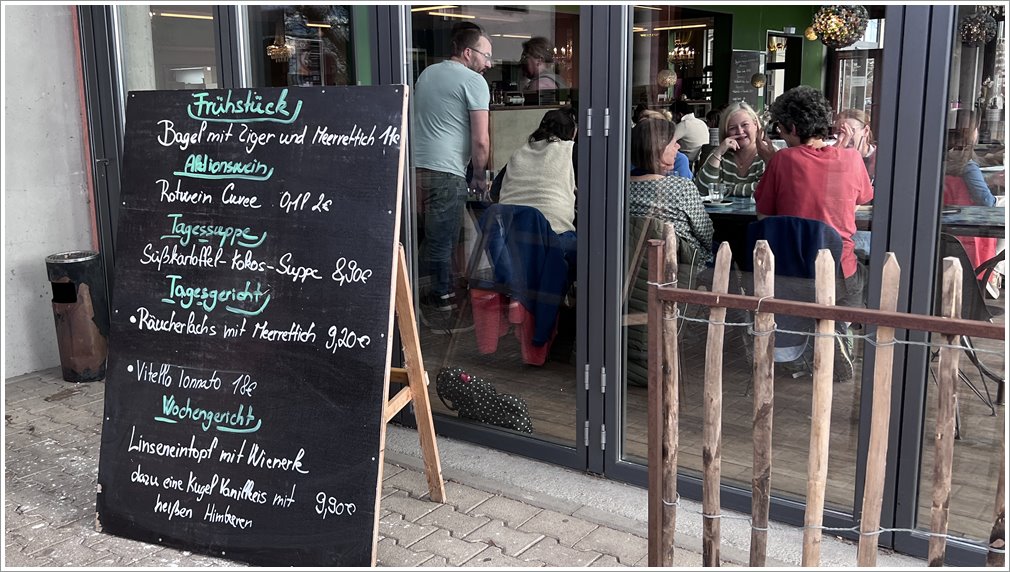 Frühstück
Bagel mit Ziger und Meerrettich 11€
Aktionswein
Rotwein Cuvee 0,1l 2€
Tagessuppe
Süßkartoffel-Kokos-Suppe 8,90€
Tagesgericht
•Räucherlachs mit Meerrettich 9,20€
•Vitello tonnato 18€
Wochengericht
Linseneintopf mit Wienerle
dazu eine Kugel Vanilleeis mit 9,90€
heißen Himbeeren